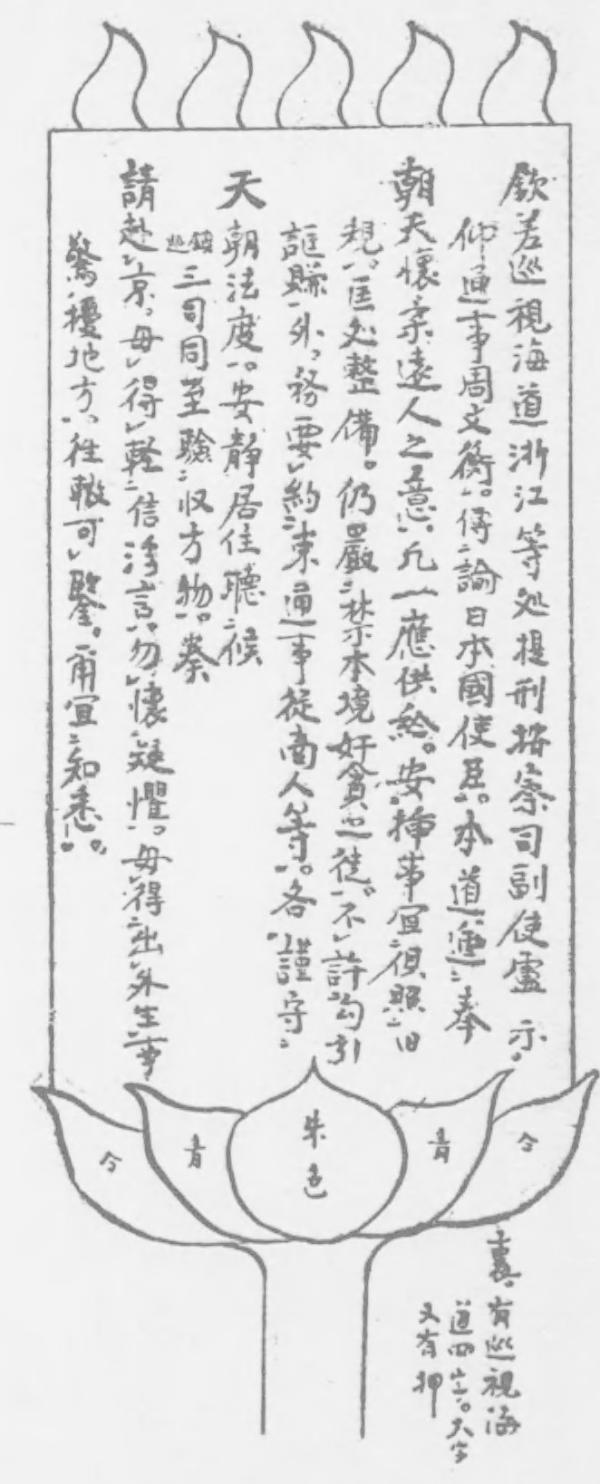 欽差巡視海道浙江等処提刑按察司副使盧　示。
仰通事周文衡。傳諭日本國使臣。本道遵奉
朝天懷柔遠人之意。凡一應供給。安挿事宜俱照旧
規。匡処整備。仍嚴禁本境奸貪之徒。不許勾引
誆賺外。務要約束通事從商人等。各謹守
天朝法度。安靜居住聽候
鎮巡三司同至驗収方物。奏
請赴京。毋得輕信浮言。勿懷疑懼。毋得出外生事
驚擾地方。往轍可鑒。爾宜知悉。
朱色
青
青
仝
仝
裏。有巡視海
道四字。大字
又有押